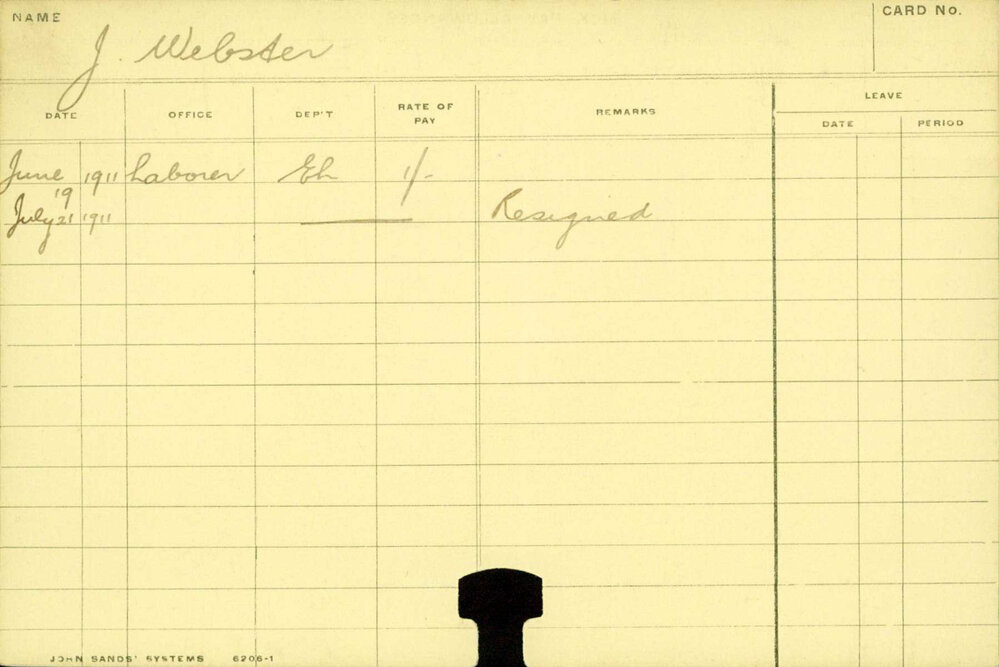 NAME
CARD No.
J. Webster
DATE OFFICE DEP'T RATE OF PAY REMARKS LEAVE
DATE PERIOD
June 19 1911 Laborer Eh 1/-
July 21 1911 Resigned
JOHN SANDS' SYSTEMS 6206-1